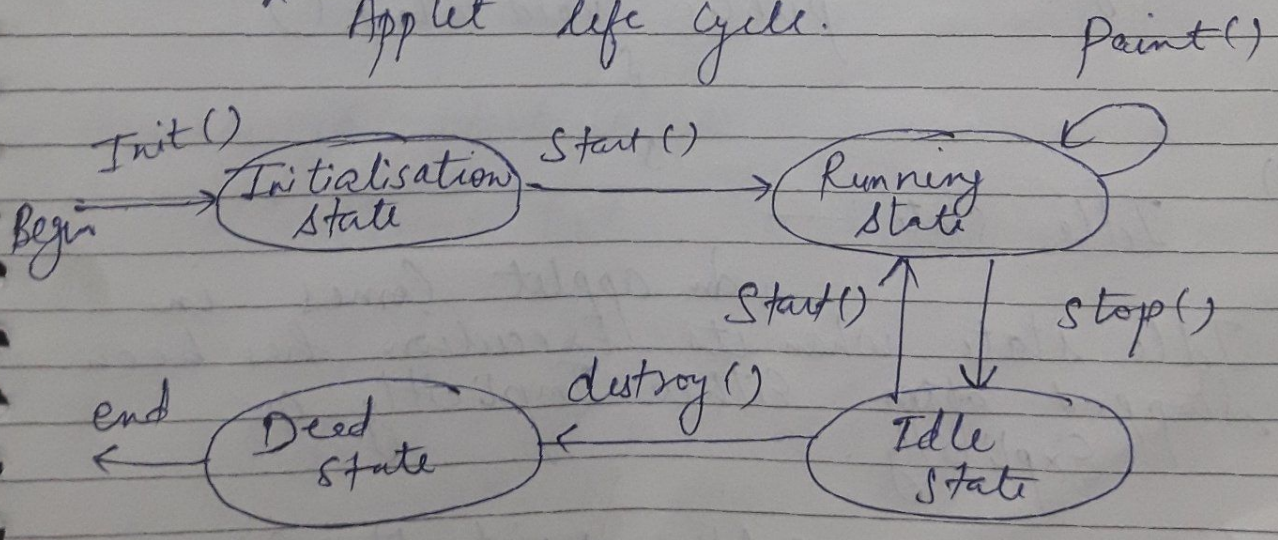 Applet life Cycle.
Paint()
Init()
Start()
Begin
Initialisation
state
Running
state
Start()
Stop()
end
destroy()
Dead
state
Idle
state